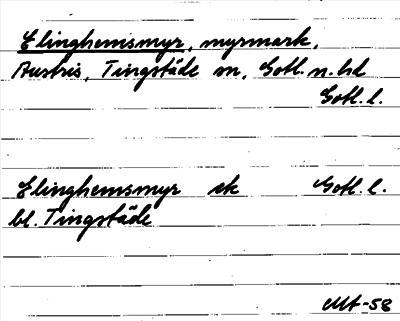 Elinghemsmyr, myrmark,
Austris, Tingstäde sn, Gotl. n. hd
Gotl. l.
Elinghemsmyr ek Gotl. l.
bl. Tingstäde